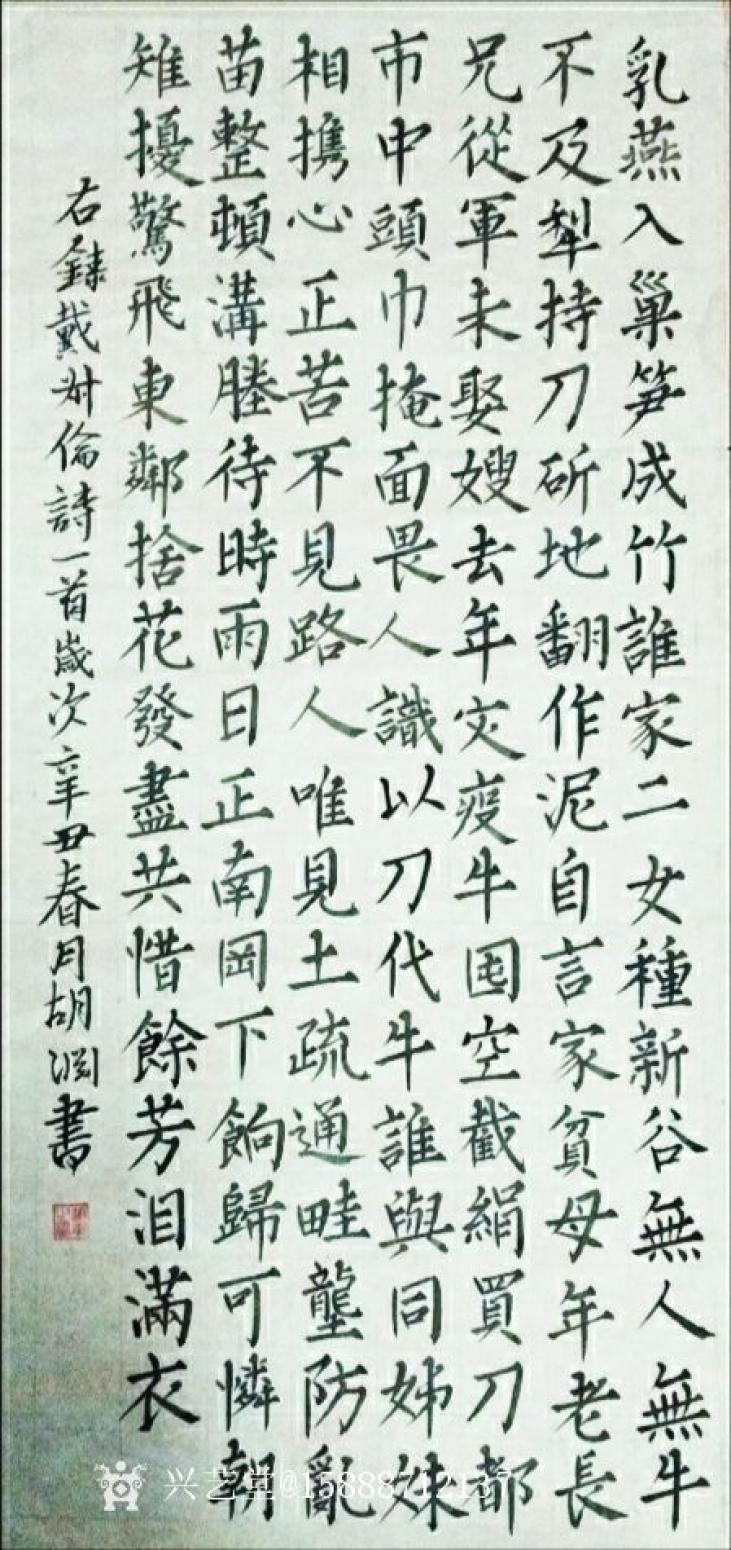 乳燕入巢笋成竹誰家二女種新谷無人無牛
不及犁持刀斫地翻作泥自言家貧母年老長
兄從軍未娶嫂去年灾疫牛囤空截絹買刀都
市中頭巾掩面畏人識以刀代牛誰與同姊妹
相携心正苦不見路人唯見土疏通畦壟防亂
苗整頓溝塍待時雨日正南岡下餉歸可憐朝
雉擾驚飛東鄰捨花發盡共惜餘芳泪滿衣
右録戴叔倫詩一首歲次辛丑春月胡渊書
兴艺堂@15888712137